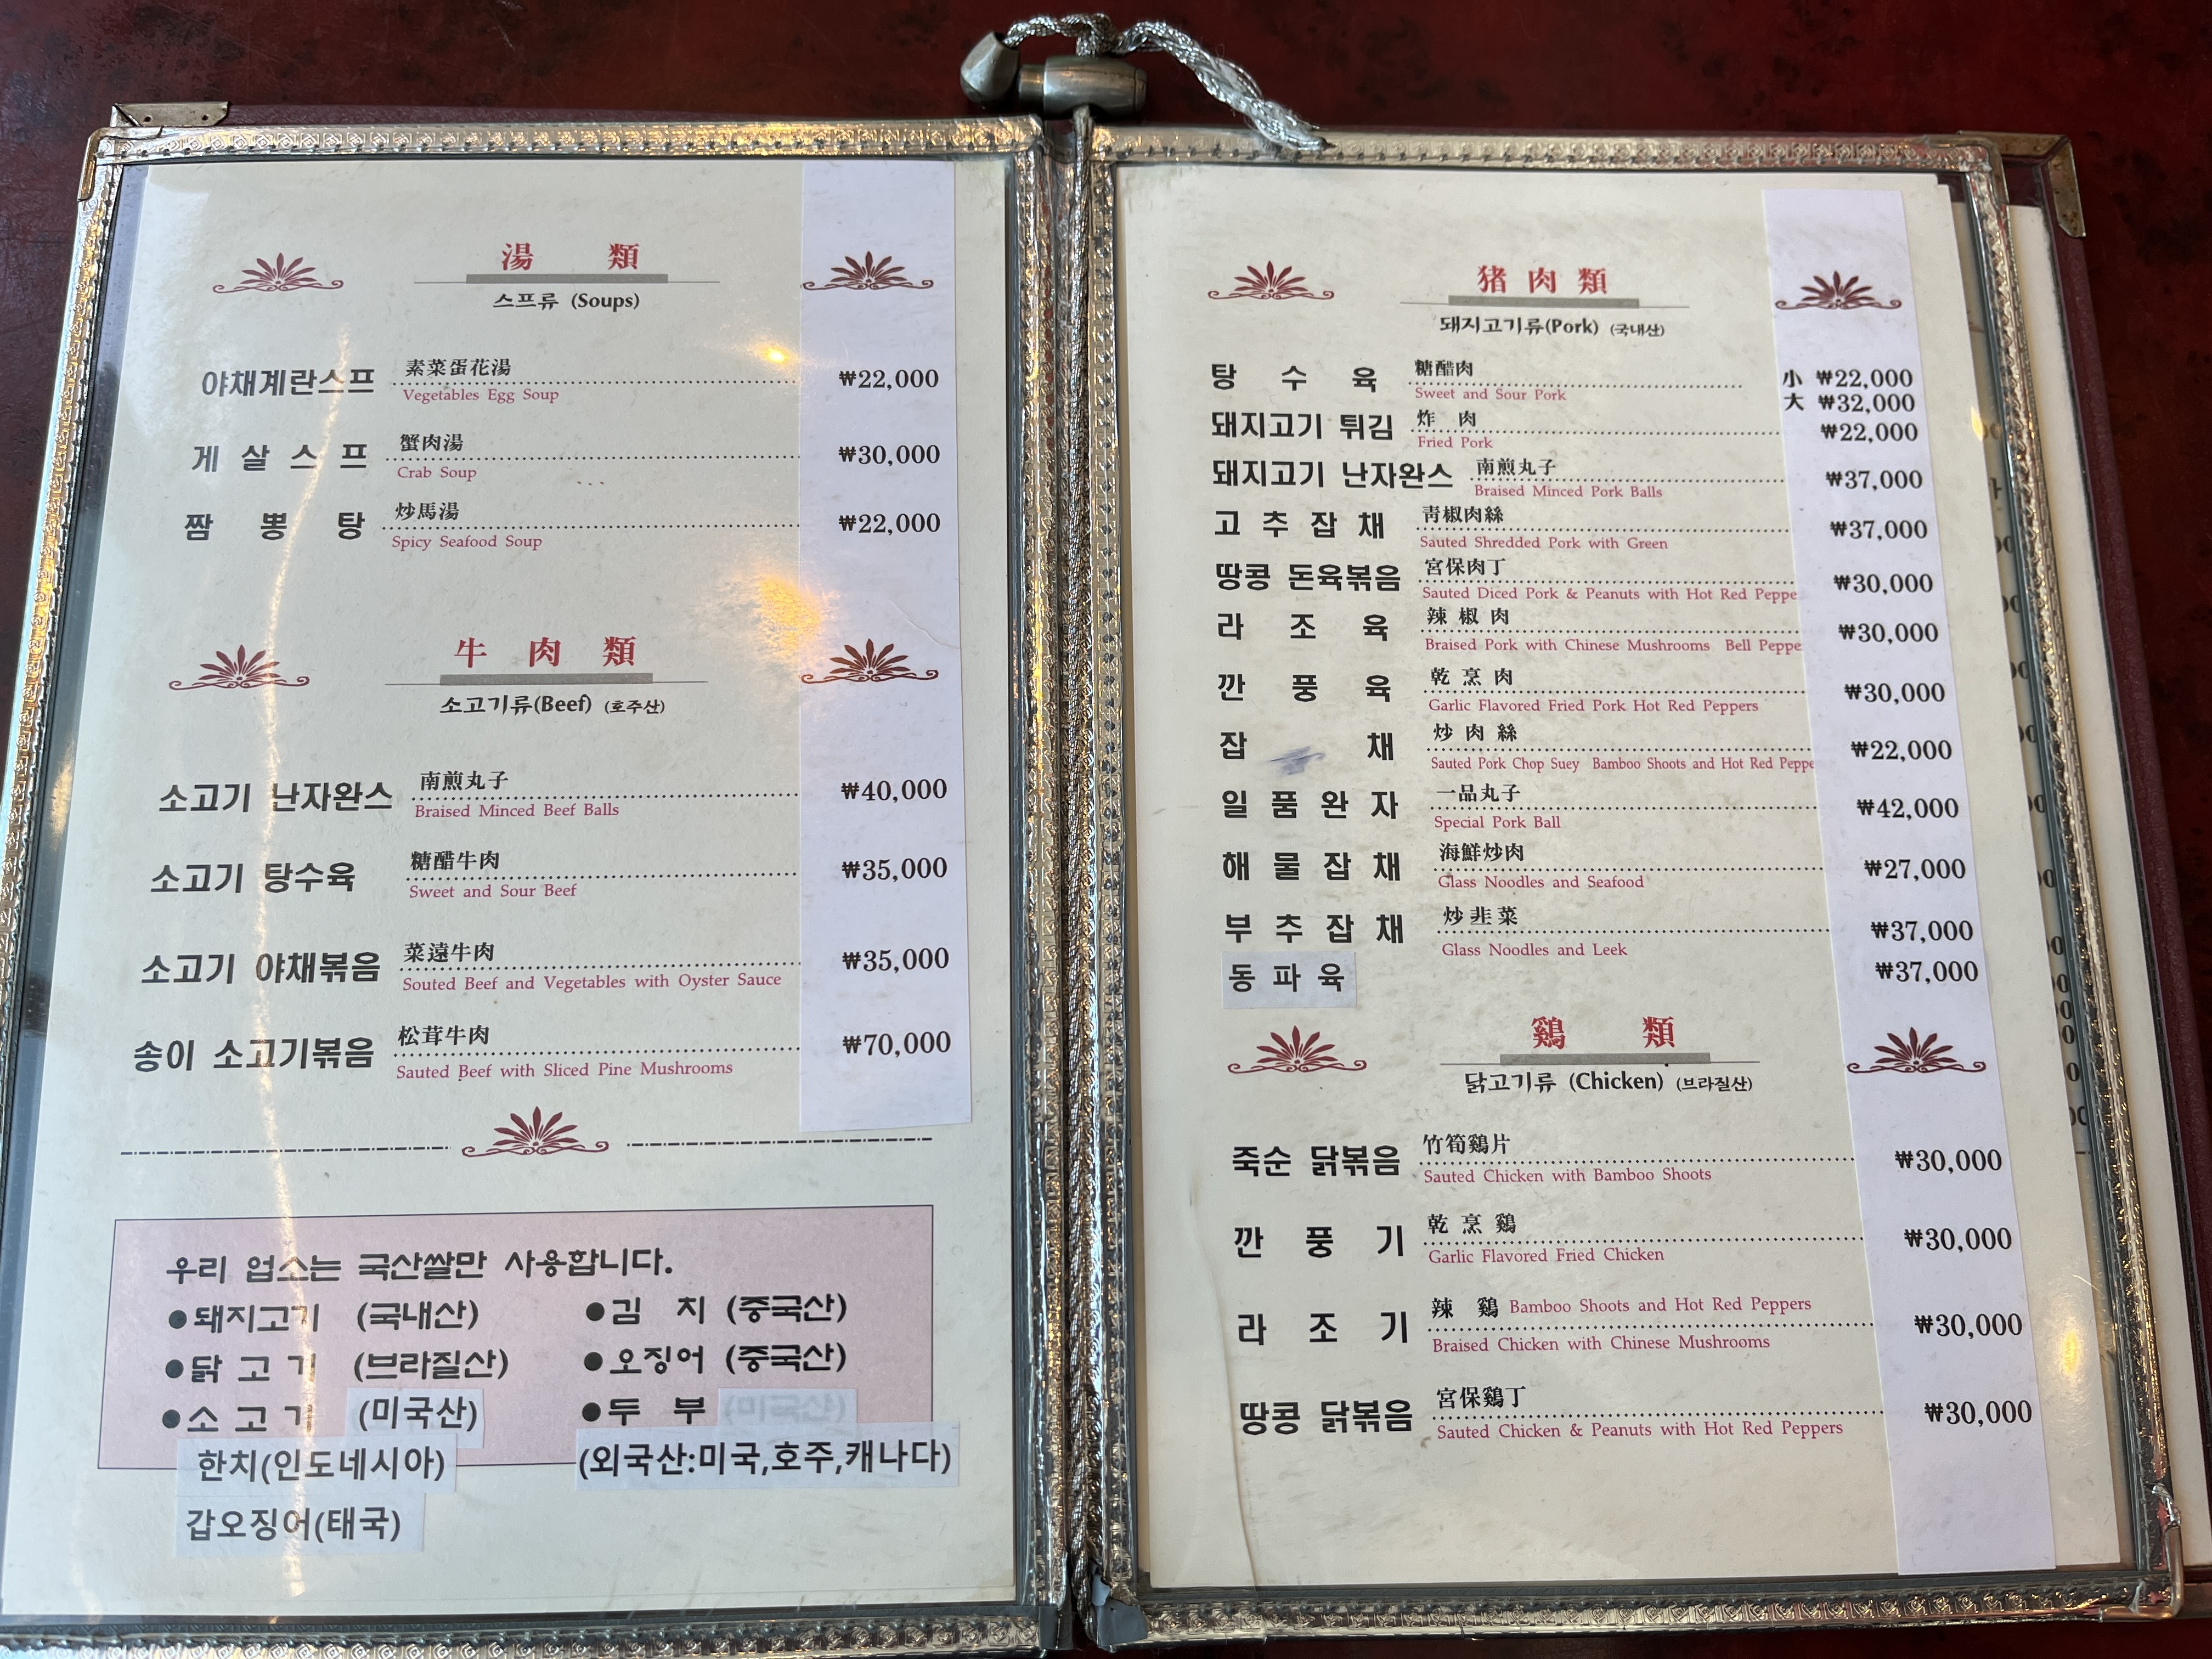 湯 類
스프류 (Soups)
야채계란스프 素菜蛋花湯 ₩22,000
Vegetables Egg Soup
게 살 스 프 蟹肉湯 ₩30,000
Crab Soup
짬 뽕 탕 炒馬湯 ₩22,000
Spicy Seafood Soup
牛 肉 類
소고기류(Beef) (호주산)
소고기 난자완스 南煎丸子 ₩40,000
Braised Minced Beef Balls
소고기 탕수육 糖醋牛肉 ₩35,000
Sweet and Sour Beef
소고기 야채볶음 菜遠牛肉 ₩35,000
Souted Beef and Vegetables with Oyster Sauce
송이 소고기볶음 松茸牛肉 ₩70,000
Sauted Beef with Sliced Pine Mushrooms
우리 업소는 국산쌀만 사용합니다.
●돼지고기 (국내산) ●김 치 (중국산)
●닭 고 기 (브라질산) ●오징어 (중국산)
●소 고 기 (미국산) ●두 부 (미국산)
한치(인도네시아) (외국산:미국,호주,캐나다)
갑오징어(태국)
猪 肉 類
돼지고기류(Pork) (국내산)
탕 수 육 糖醋肉 小 ₩22,000
Sweet and Sour Pork 大 ₩32,000
돼지고기 튀김 炸 肉 ₩22,000
Fried Pork
돼지고기 난자완스 南煎丸子 ₩37,000
Braised Minced Pork Balls
고 추 잡 채 靑椒肉絲 ₩37,000
Sauted Shredded Pork with Green
땅콩 돈육볶음 宮保肉丁 ₩30,000
Sauted Diced Pork & Peanuts with Hot Red Peppe
라 조 육 辣 椒 肉 ₩30,000
Braised Pork with Chinese Mushrooms Bell Peppe
깐 풍 육 乾 烹 肉 ₩30,000
Garlic Flavored Fried Pork Hot Red Peppers
잡 채 炒 肉 絲 ₩22,000
Sauted Pork Chop Suey Bamboo Shoots and Hot Red Peppe
일 품 완 자 一品丸子 ₩42,000
Special Pork Ball
해 물 잡 채 海鮮炒肉 ₩27,000
Glass Noodles and Seafood
부 추 잡 채 炒韮菜 ₩37,000
Glass Noodles and Leek
동 파 육 ₩37,000
鷄 類
닭고기류 (Chicken) (브라질산)
죽순 닭볶음 竹筍鷄片 ₩30,000
Sauted Chicken with Bamboo Shoots
깐 풍 기 乾 烹 鷄 ₩30,000
Garlic Flavored Fried Chicken
라 조 기 辣 鷄 Bamboo Shoots and Hot Red Peppers ₩30,000
Braised Chicken with Chinese Mushrooms
땅콩 닭볶음 宮保鷄丁 ₩30,000
Sauted Chicken & Peanuts with Hot Red Peppers